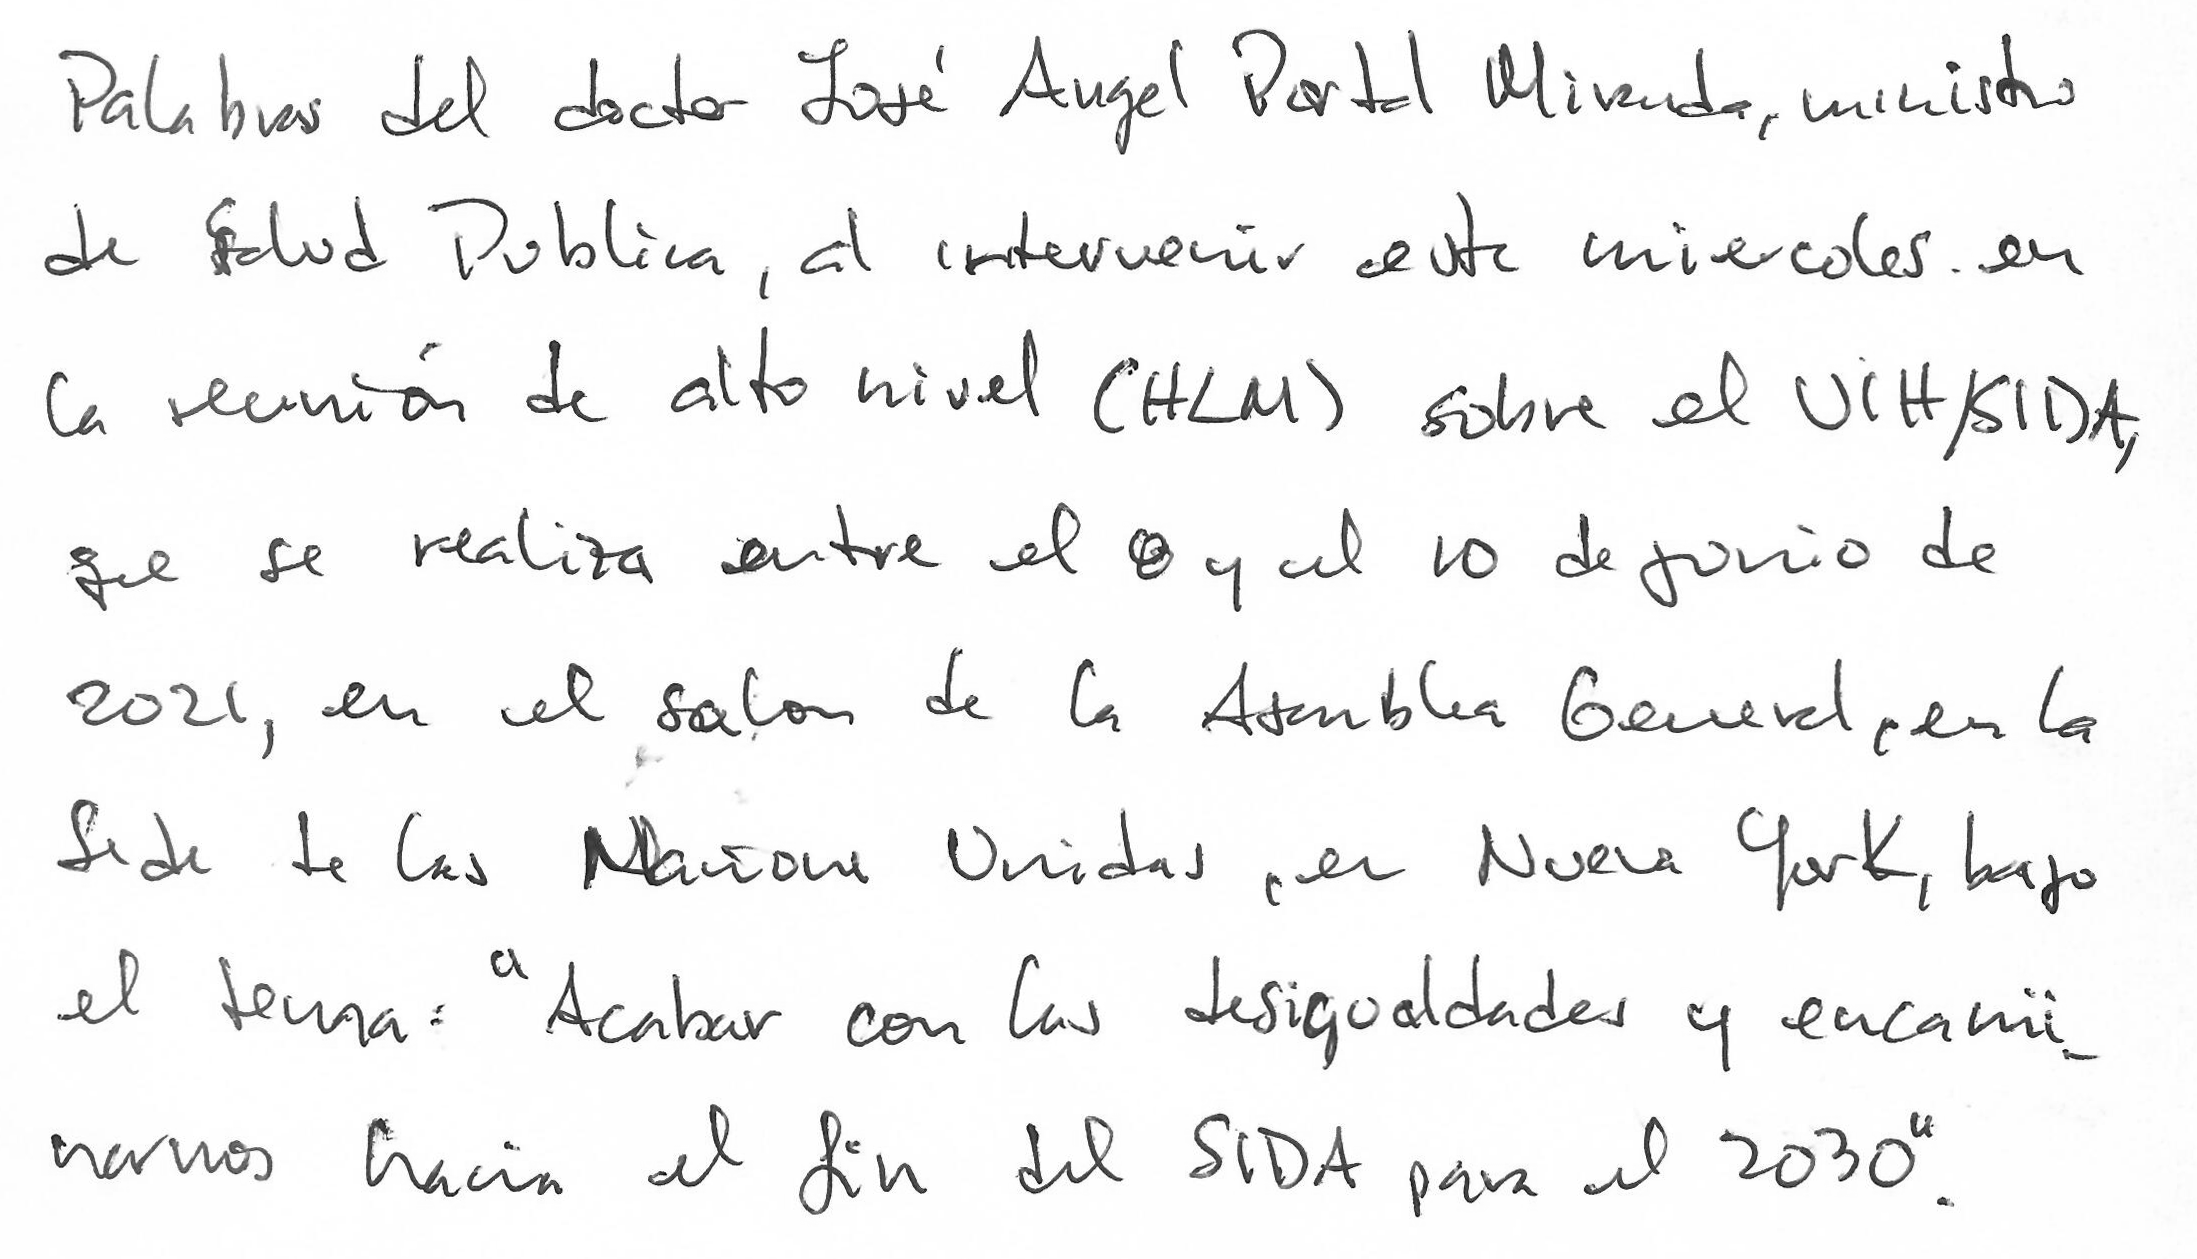 Palabras del doctor José Angel Portal Miranda, ministro
de Salud Publica, al intervenir este miercoles en
la reunión de alto nivel (HLM) sobre el VIH/SIDA,
que se realiza entre el 8 y el 10 de junio de
2021, en el salon de la Asamblea General, en la
Sede de las Nacione Unidas, en Nueva York, bajo
el tema: "Acabar con las desigualdades y encami-
narnos hacia el fin del SIDA para el 2030".